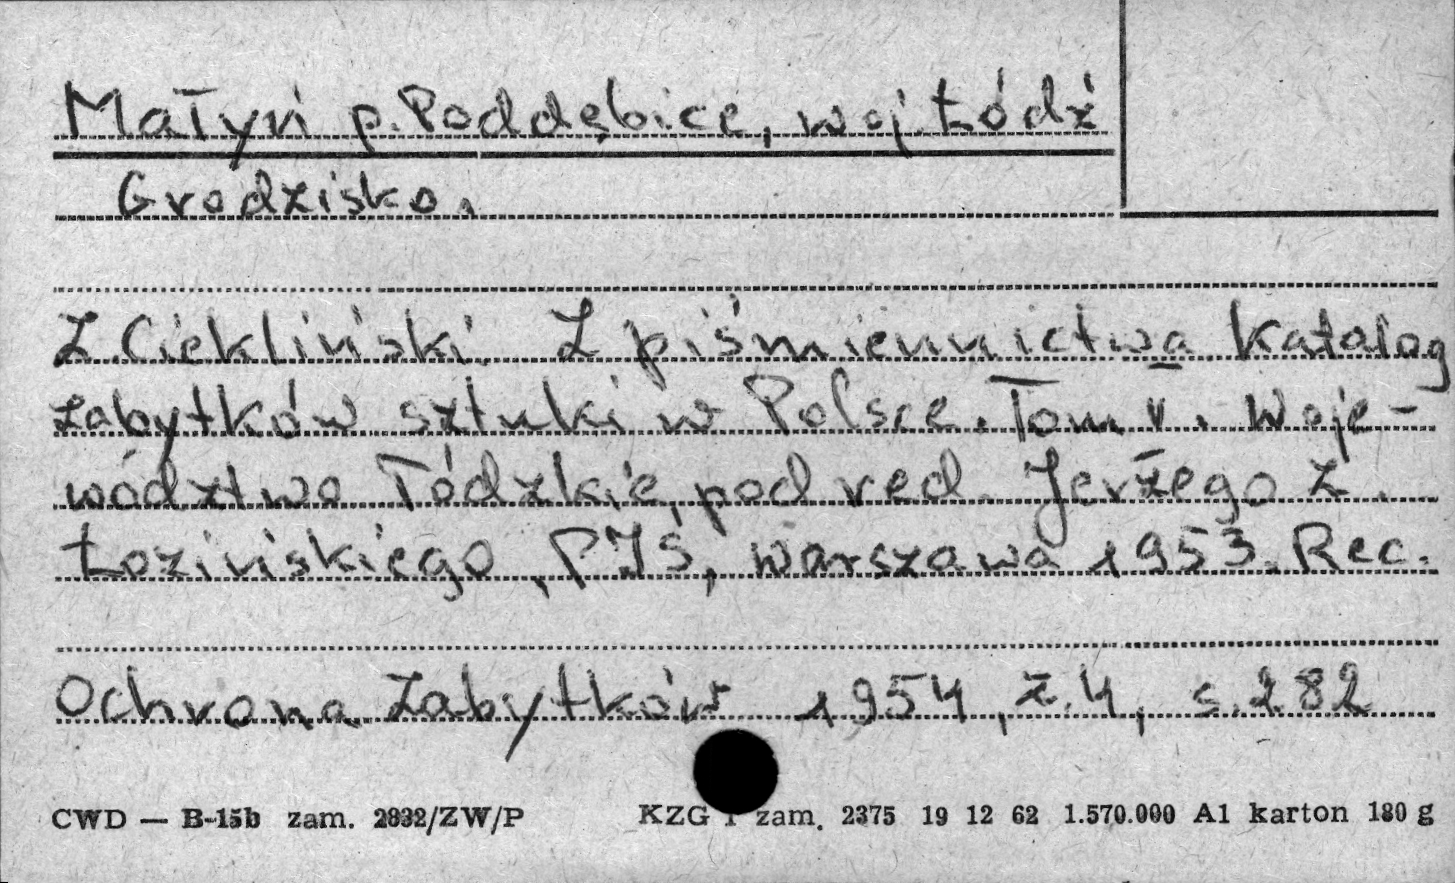 Małyń p. Poddębice, woj. Łódź
Grodzisko.
Z. Ciekliński. Z piśmiennictwa. Katalog
zabytków sztuki w Polsce. Tom II. Woje-
wództwo łódzkie, pod red. Jerzego Z.
Łozińskiego, PIS, Warszawa 1953. Rec.
Ochrona Zabytków 1954, z. 4, s. 282
CWD — B-15b zam. 2832/ZW/P KZG 1 zam. 2375 19 12 62 1.570.000 A1 karton 180 g